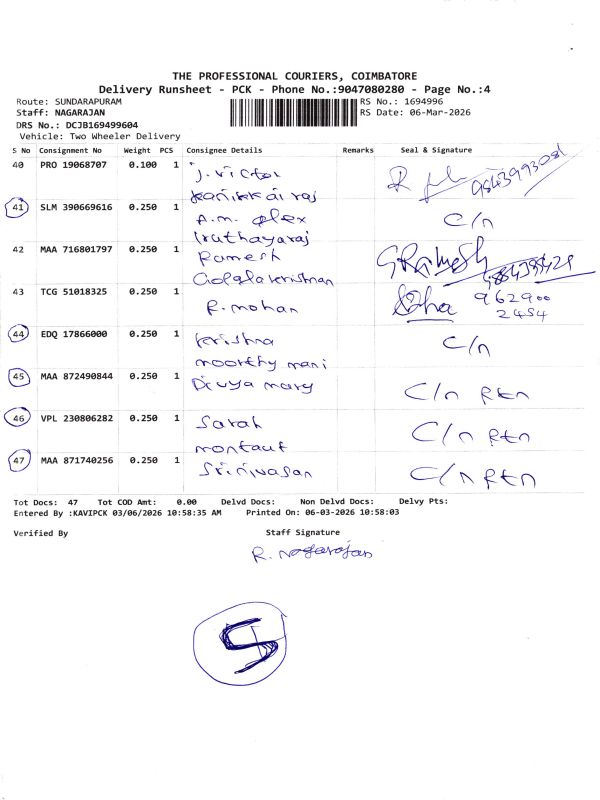 THE PROFESSIONAL COURIERS, COIMBATORE
Delivery Runsheet - PCK - Phone No.:9047080280 - Page No.:4
Route: SUNDARAPURAM RS No.: 1694996
Staff: NAGARAJAN RS Date: 06-Mar-2026
DRS No.: DCJB169499604
Vehicle: Two Wheeler Delivery
S No Consignment No Weight PCS Consignee Details Remarks Seal & Signature
40 PRO 19068707 0.100 1 J. Victor
Kanikkai raj
41 SLM 390669616 0.250 1 A.m. Alex C/n
Iruthayaraj
42 MAA 716801797 0.250 1 Ramesh
43 TCG 51018325 0.250 1 R. mohan 962900
2454
44 EDQ 17866000 0.250 1 Krishna C/n
moorthy mani
45 MAA 872490844 0.250 1 Divya mary C/n Rtn
46 VPL 230806282 0.250 1 Sarah C/n Rtn
47 MAA 871740256 0.250 1 Srinivasan C/n Rtn
Tot Docs: 47 Tot COD Amt: 0.00 Delvd Docs: Non Delvd Docs: Delvy Pts:
Entered By :KAVIPCK 03/06/2026 10:58:35 AM Printed On: 06-03-2026 10:58:03
Verified By Staff Signature
R. Nagarajan
5